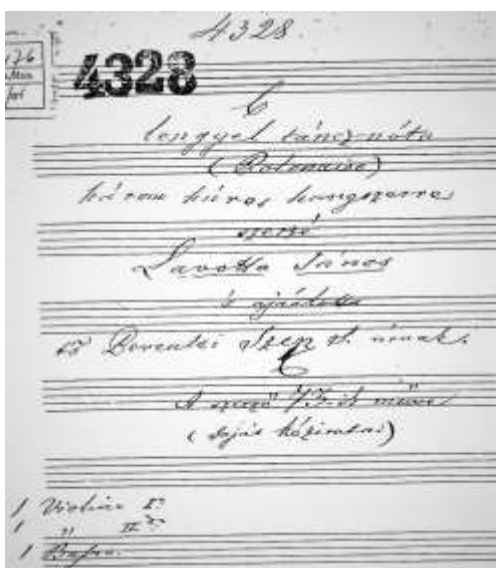 4328.
4328
6
lengyel táncz-nóta
(Polonaise)
három húros hangszerre
szerzé
Lavotta János
és ajánlotta
Szép úrnak.
A szerző 73-ik műve
(saját kézirata)
1 Violino I
1 " II
1 Basso.